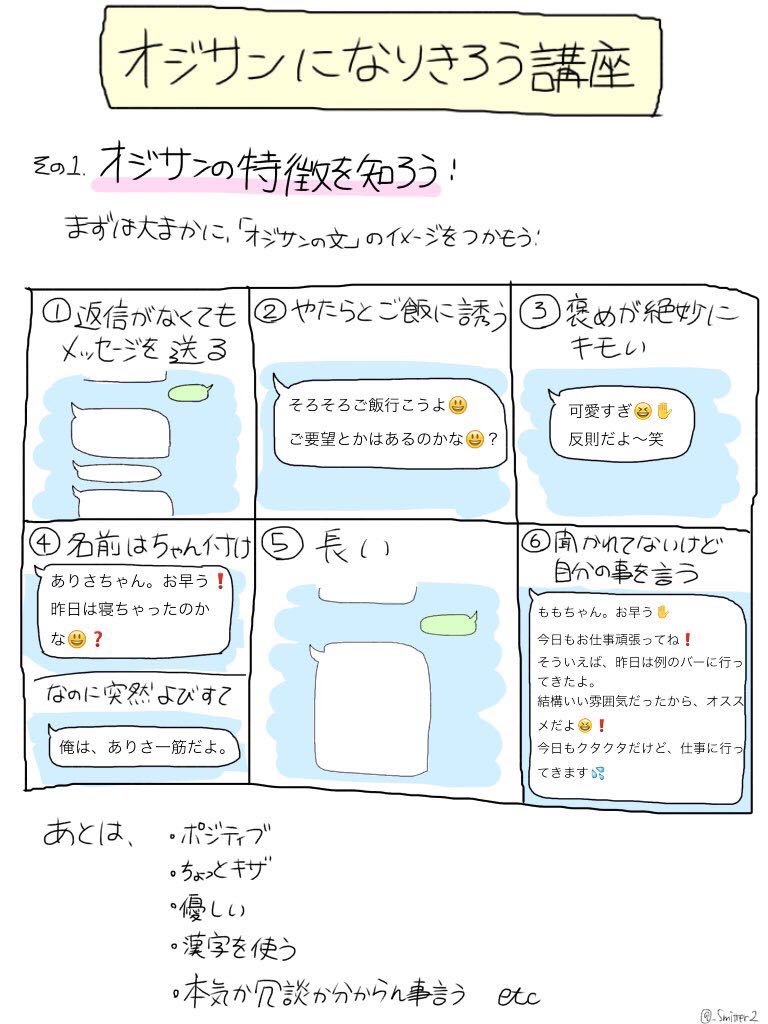 オジサンになりきろう講座
その1. オジサンの特徴を知ろう!
まずは大まかに,「オジサンの文」のイメージをつかもう!
① 返信がなくても
メッセージを送る
② やたらとご飯に誘う
そろそろご飯行こうよ😃
ご要望とかはあるのかな😃？
③ 褒めが絶妙に
キモい
可愛すぎ😆✋
反則だよ〜笑
④ 名前はちゃん付け
ありさちゃん。お早う❗
昨日は寝ちゃったのか
な😃❓
なのに突然よびすて
俺は、ありさ一筋だよ。
⑤ 長い
⑥ 聞かれてないけど
自分の事を言う
ももちゃん。お早う✋
今日もお仕事頑張ってね❗
そういえば、昨日は例のバーに行っ
てきたよ。
結構いい雰囲気だったから、オスス
メだよ😆❗
今日もクタクタだけど、仕事に行っ
てきます💦
あとは、
・ポジティブ
・ちょっとキザ
・優しい
・漢字を使う
・本気か冗談か分からん事言う etc
@_Smitter2